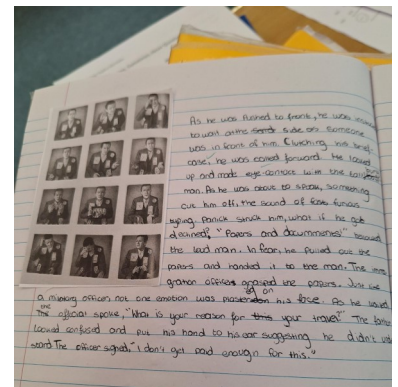 As he was pushed to front, he was
to wait at the side as someone
was in front of him. Clutching his brief-
case, he was called forward. He looked
up and made eye-contact with the
man. As he was about to speak, something
cut him off: the sound of furious
typing. Panick struck him, what if he got
declined? "Papers and documents!"
the loud man. In fear, he pulled out the
papers and handed it to the man. The
gration officer grasped the papers. Just like
a officer, not one emotion was on his face. As he
The official spoke, "What is your reason for your travel?" The
looked confused and put his hand to his ear suggesting he didn't
The officer sighed, "I don't get paid enough for this."